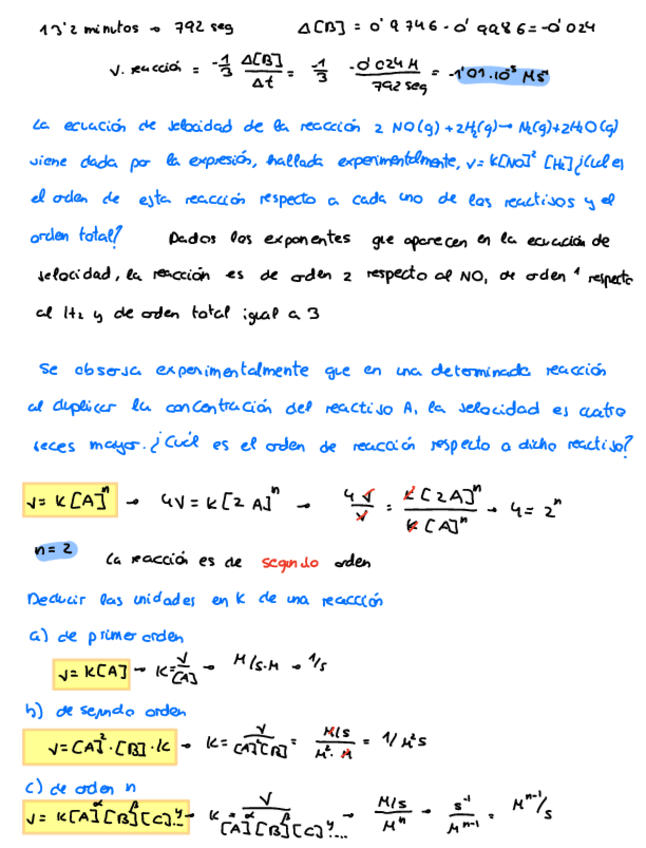 13'2 minutos → 792 seg    Δ[B] = 0'9746 - 0'9986 = -0'024
v. reacción = -1/3 Δ[B]/Δt = -1/3 -0'024M/792 seg = -1'01.10⁻⁵ Ms⁻¹
La ecuación de velocidad de la reacción 2 NO(g) + 2H₂(g) → N₂(g) + 2H₂O(g)
viene dada por la expresión, hallada experimentalmente, v = K[NO]² [H₂] ¿Cuál es
el orden de esta reacción respecto a cada uno de los reactivos y el
orden total? Dados los exponentes que aparecen en la ecuación de
velocidad, la reacción es de orden 2 respecto al NO, de orden 1 respecto
al H₂ y de orden total igual a 3
Se observa experimentalmente que en una determinada reacción
al duplicar la concentración del reactivo A, la velocidad es cuatro
veces mayor. ¿Cuál es el orden de reacción respecto a dicho reactivo?
v = K[A]ⁿ → 4v = K[2A]ⁿ → 4v/v = K[2A]ⁿ/K[A]ⁿ → 4 = 2ⁿ
n = 2    La reacción es de segundo orden
Deducir las unidades en K de una reacción
a) de primer orden
v = K[A] → K = v/[A] → M/s·M → 1/s
b) de segundo orden
v = [A]²·[B]·K → K = v/[A]²[B] = M/s/M²·M = 1/M²s
c) de orden n
v = K[A]^α[B]^β[C]^γ... → K = v/[A][B][C]^γ... → M/s/Mⁿ → s⁻¹/Mⁿ⁻¹ = Mⁿ⁻¹/s